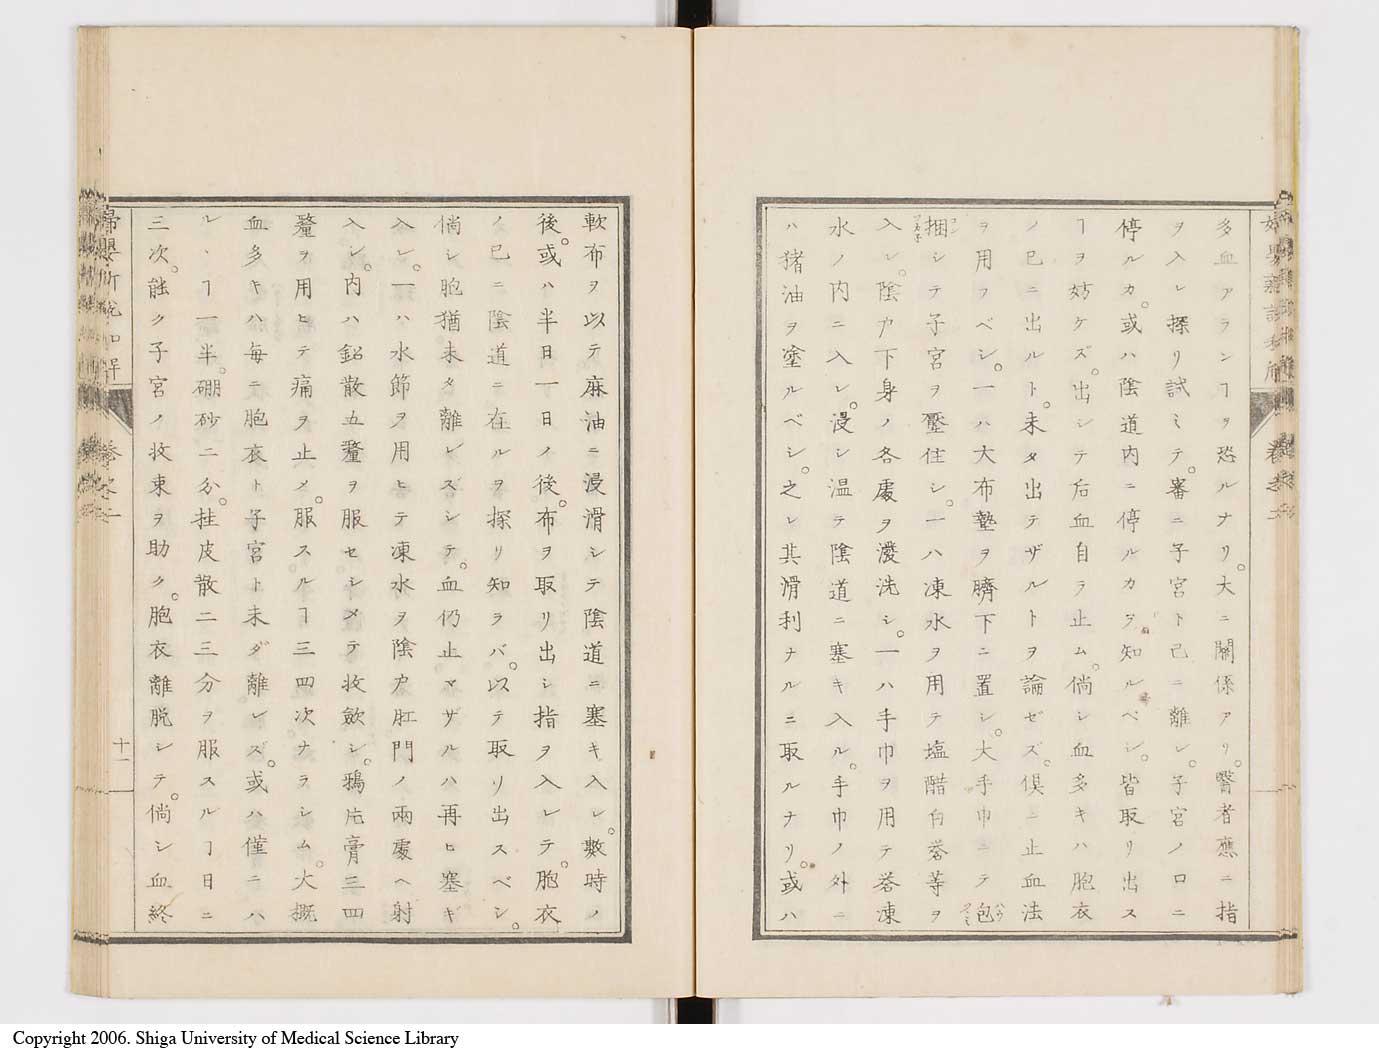 多血アランヿヲ恐ルナリ。大ニ關係アリ。醫者應ニ指
ヲ入レ探リ試ミテ。審ニ子宮ト已ニ離レ。子宮ノ口ニ
停ルカ。或ハ陰道內ニ停ルカヲ知ルベシ。皆取リ出ス
ヿヲ妨ケズ。出シテ后血自ラ止ム。倘シ血多キハ胞衣
ノ已ニ出ルト。未タ出テザルトヲ論ゼズ。俱ニ止血法
ヲ用フベシ。一ハ大布墊ヲ臍下ニ置シ。大手巾ニテ包
捆シテ子宮ヲ壓住シ。一ハ凍水ヲ用テ塩醋白礬等ヲ
入レ。陰戶下身ノ各處ヲ潑洗シ。一ハ手巾ヲ用テ礬凍
水ノ內ニ入レ。浸シ温テ陰道ニ塞キ入ル。手巾ノ外ニ
ハ猪油ヲ塗ルベシ。之レ其滑利ナルニ取ルナリ。或ハ
軟布ヲ以テ麻油ニ浸滑シテ陰道ニ塞キ入レ。數時ノ
後。或ハ半日一日ノ後。布ヲ取リ出シ指ヲ入レテ。胞衣
ノ已ニ陰道ニ在ルヲ探リ知ラバ。以テ取リ出スベシ。
倘シ胞猶未タ離レズシテ。血仍止マザルハ再ヒ塞ギ
入レ。一ハ水節ヲ用ヒテ凍水ヲ陰戶肛門ノ兩處ヘ射
入レ。內ハ鉛散五釐ヲ服セシメテ收斂シ。鴉片膏三四
釐ヲ用ヒテ痛ヲ止メ。服スルヿ三四次ナラシム。大概
血多キハ每ニ胞衣ト子宮ト未ダ離レズ。或ハ僅ニハ
ルヽヿ一半。硼砂二分。桂皮散二三分ヲ服スルヿ日ニ
三次。能ク子宮ノ收束ヲ助ク。胞衣離脫シテ。倘シ血終
十一
Copyright 2006. Shiga University of Medical Science Library